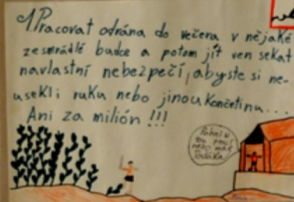 1 Pracovat odrána do večera v nějaké
zesmrádlé budce a potom jít ven sekat
navlastní nebezpečí, abyste si ne-
usekli ruku nebo jinou končetinu...
Ani za milión !!!